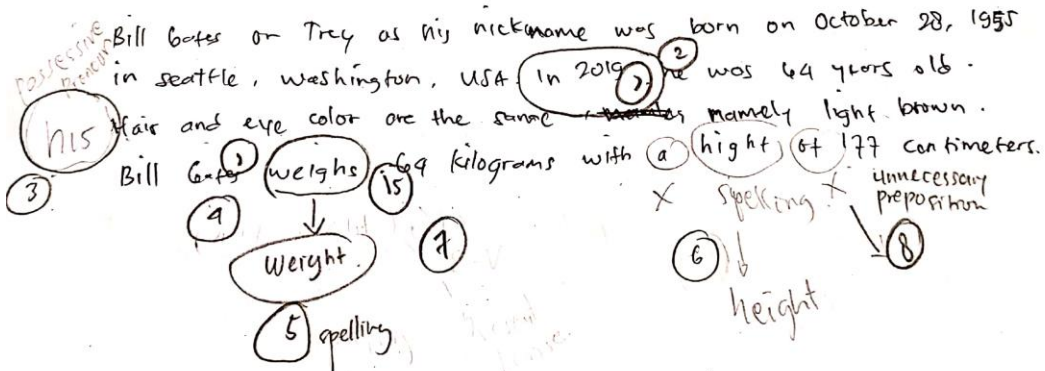 possessive pronoun
Bill Gates or Trey as his nickname was born on October 28, 1955
in seattle, washington, USA. In 2019, he was 64 years old.
2
his Hair and eye color are the same namely light brown.
3
Bill Gates, weighs is 69 kilograms with a hight of 177 centimeters.
4
7
X spelling X unnecessary preposition
weight
6
8
5 spelling
height